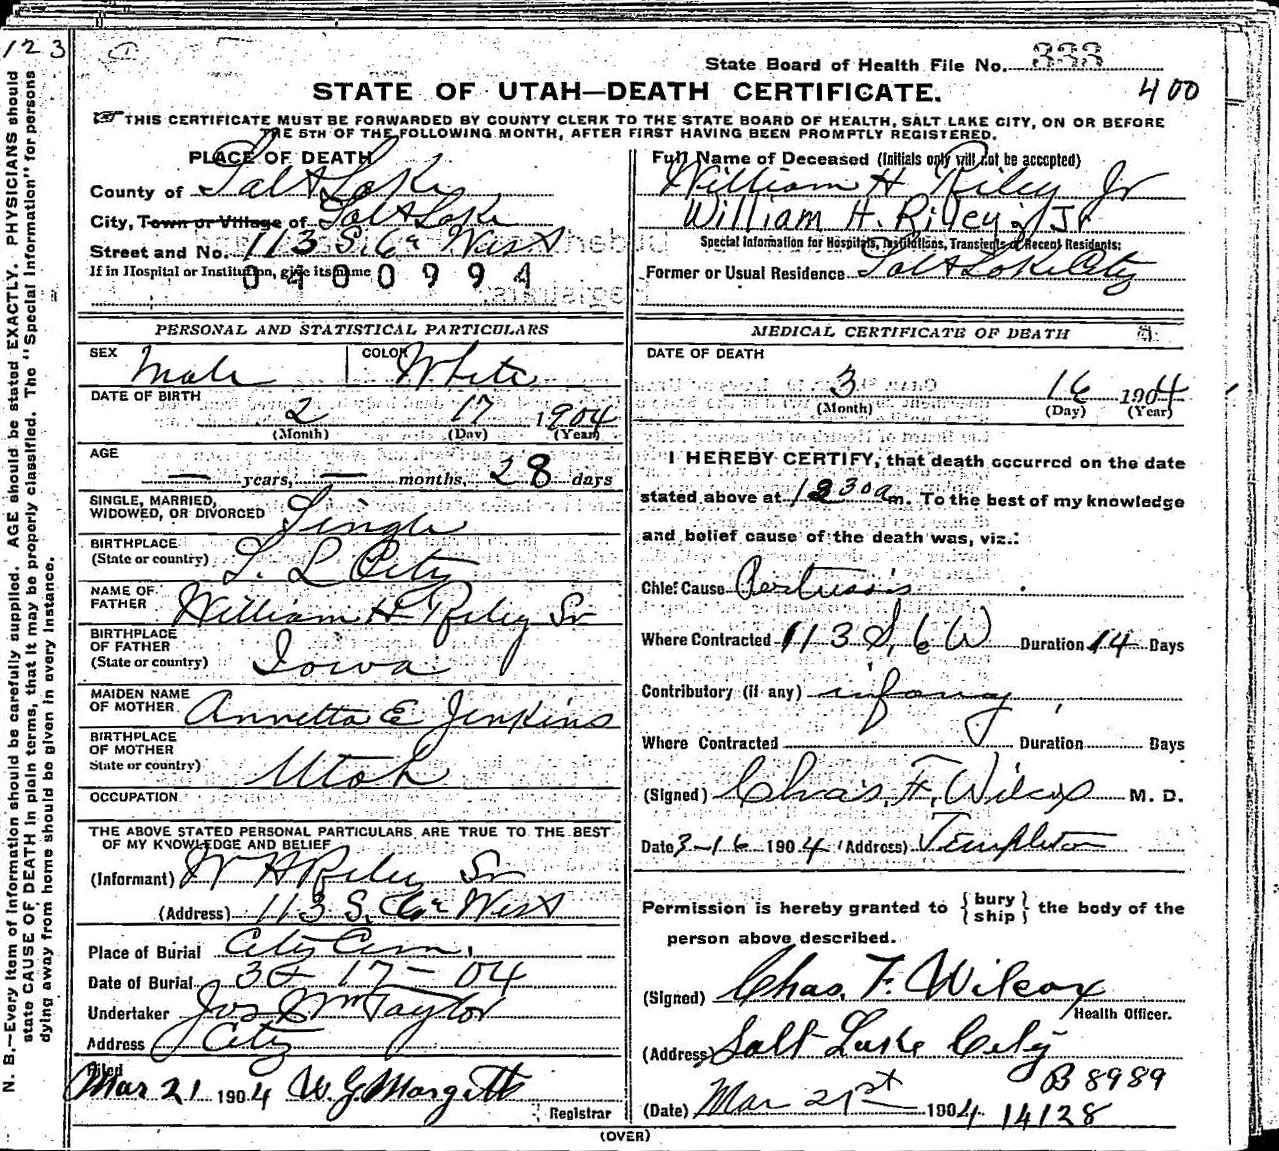 123
State Board of Health File No. 333
STATE OF UTAH—DEATH CERTIFICATE.
400
THIS CERTIFICATE MUST BE FORWARDED BY COUNTY CLERK TO THE STATE BOARD OF HEALTH, SALT LAKE CITY, ON OR BEFORE
THE 5TH OF THE FOLLOWING MONTH, AFTER FIRST HAVING BEEN PROMPTLY REGISTERED.
PLACE OF DEATH
County of Salt Lake
City, Town or Village of Salt Lake
Street and No. 113 S. 6th West
If in Hospital or Institution, give its name
0400994
Full Name of Deceased (Initials only will not be accepted)
William H Riley Jr
William H. Riley, Jr
Special Information for Hospitals, Institutions, Transients or Recent Residents:
Former or Usual Residence Salt Lake City
PERSONAL AND STATISTICAL PARTICULARS
SEX Male COLOR White
DATE OF BIRTH
2 17 1904
(Month) (Day) (Year)
AGE
— years, — months, 28 days
SINGLE, MARRIED,
WIDOWED, OR DIVORCED Single
BIRTHPLACE
(State or country) S. L City
NAME OF
FATHER William H Riley Sr
BIRTHPLACE
OF FATHER
(State or country) Iowa
MAIDEN NAME
OF MOTHER Annetta E Jenkins
BIRTHPLACE
OF MOTHER
State or country) Utah
OCCUPATION
THE ABOVE STATED PERSONAL PARTICULARS ARE TRUE TO THE BEST
OF MY KNOWLEDGE AND BELIEF
(Informant) W H Riley Sr
(Address) 113 S. 6th West
Place of Burial City Cem.
Date of Burial 3 - 17 - 04
Undertaker Jos Wm Taylor
Address City
Filed
Mar 21 1904 W. G. Margetts
Registrar
MEDICAL CERTIFICATE OF DEATH
DATE OF DEATH
3 16 1904
(Month) (Day) (Year)
I HEREBY CERTIFY, that death occurred on the date
stated above at 1230 a m. To the best of my knowledge
and belief cause of the death was, viz.:
Chief Cause Pertussis
Where Contracted 113 S. 6 W Duration 14 Days
Contributory (if any) infancy
Where Contracted Duration Days
(Signed) Chas. F. Wilcox M. D.
Date 3-16 1904 (Address) Templeton
Permission is hereby granted to {bury ship} the body of the
person above described.
(Signed) Chas. F. Wilcox
Health Officer.
(Address) Salt Lake City
B 8989
(Date) Mar 21st 1904 14128
(OVER)
N. B.—Every item of information should be carefully supplied. AGE should be stated EXACTLY. PHYSICIANS should
state CAUSE OF DEATH in plain terms, that it may be properly classified. The "Special Information" for persons
dying away from home should be given in every instance.